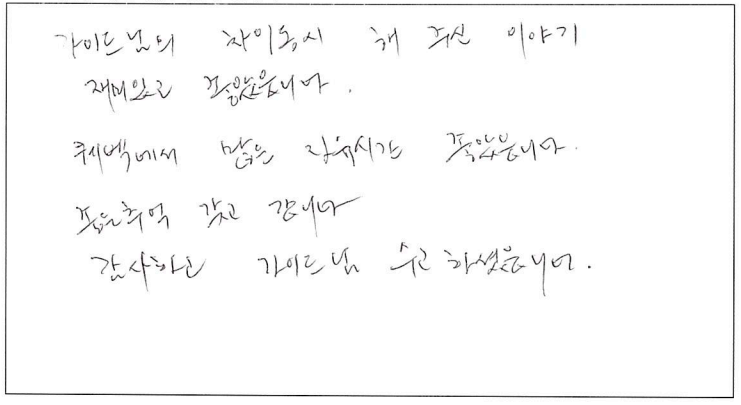 가이드님의 차이동시 해 주신 이야기
재미있고 좋았읍니다.
퀘벡에서 많은 자유시간 좋았읍니다.
좋은추억 갖고 갑니다
감사하고 가이드님 수고 하셨읍니다.